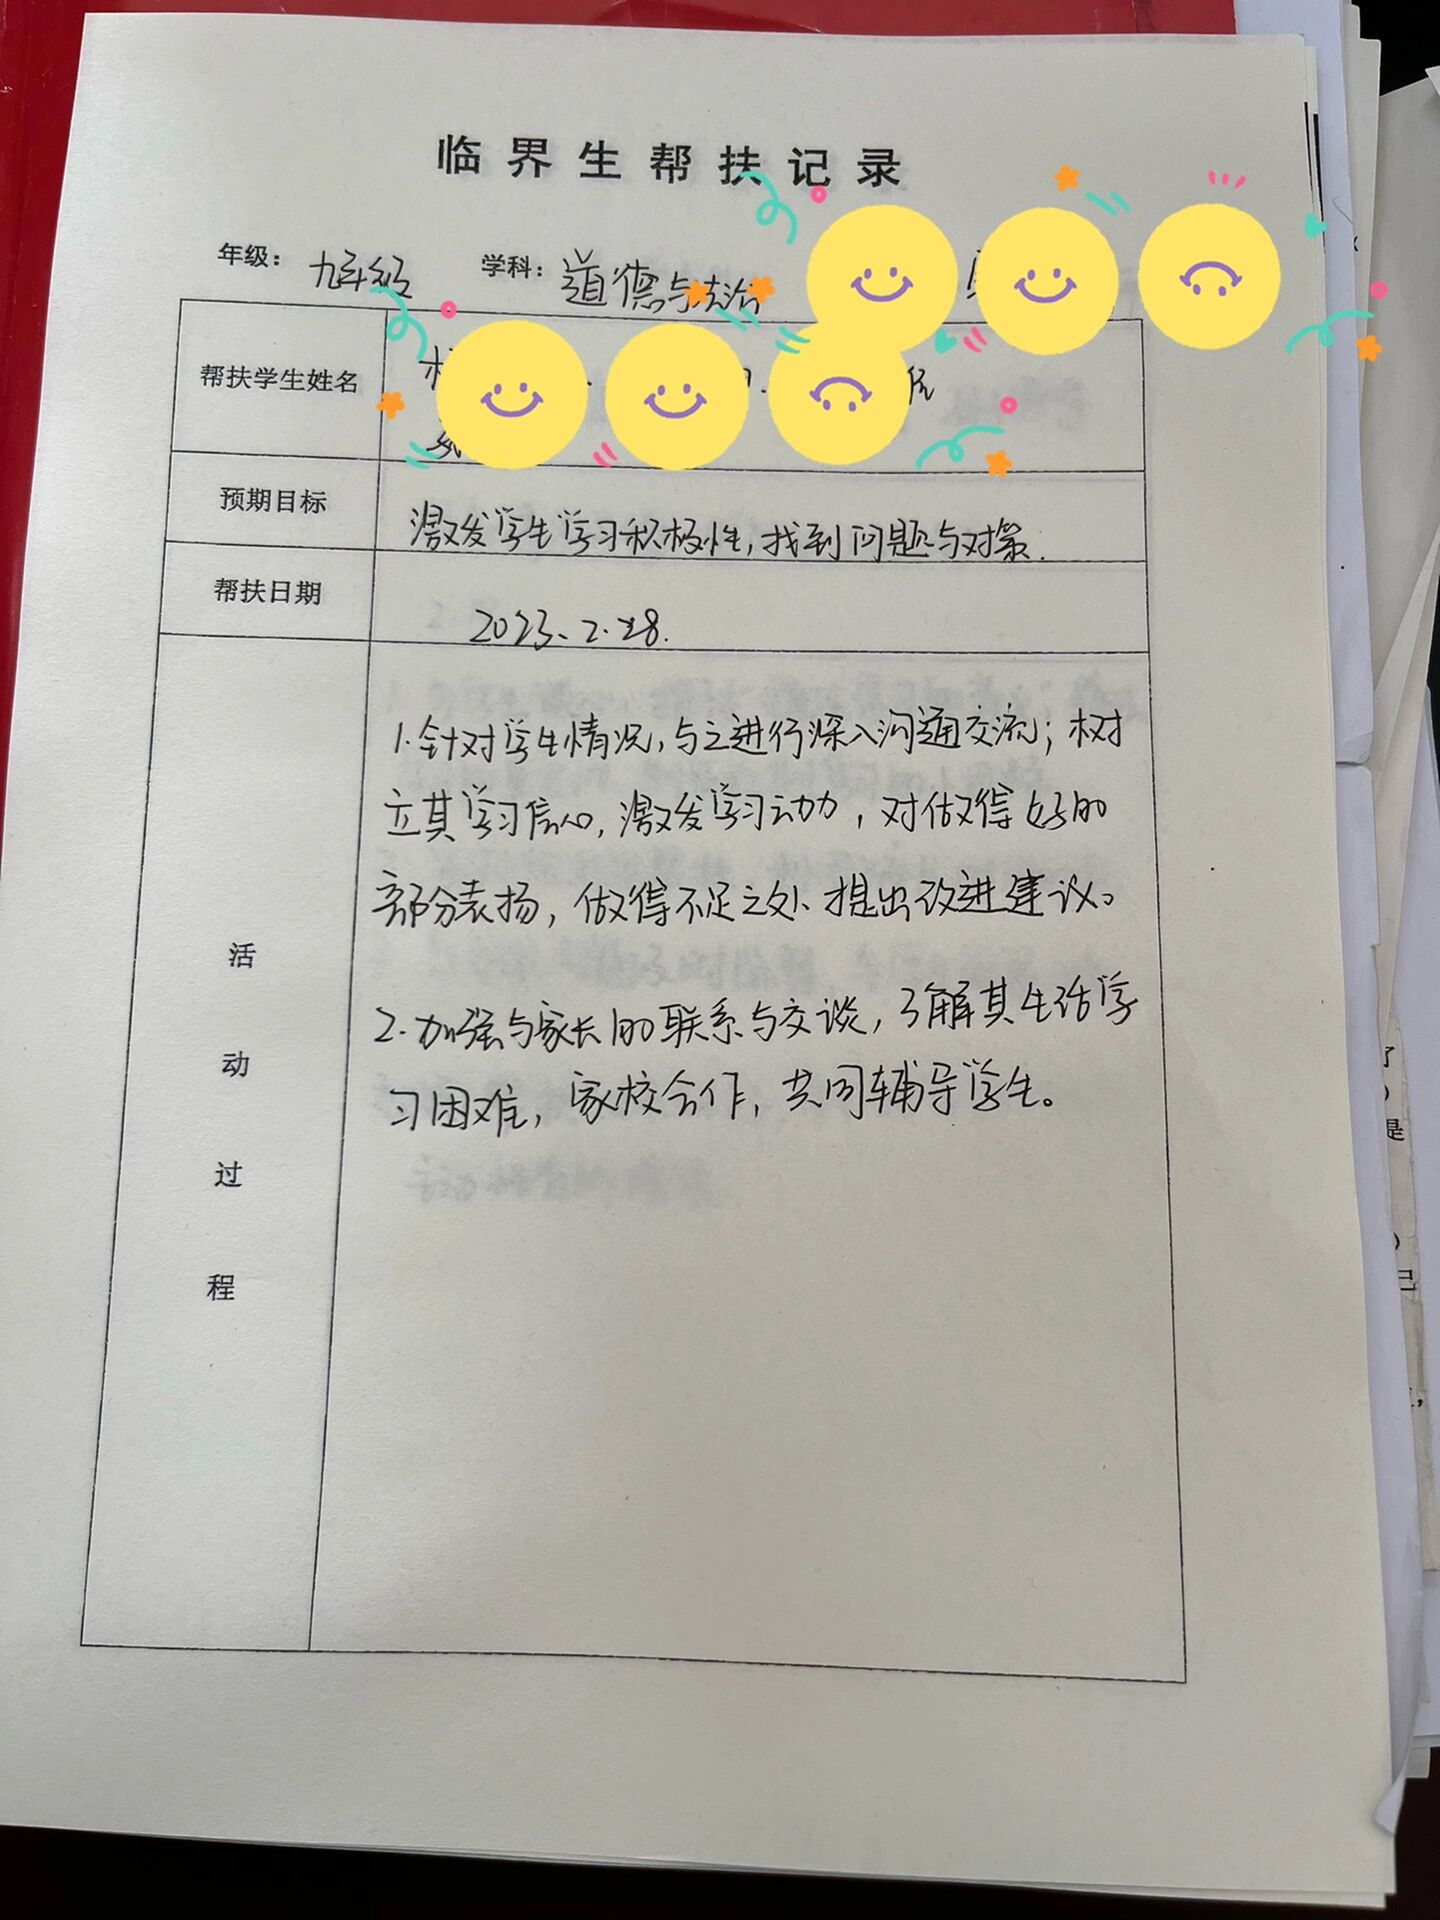 临界生帮扶记录
年级：九年级 学科：道德与法治
帮扶学生姓名
预期目标 激发学生学习积极性，找到问题与对策.
帮扶日期 2023.2.28.
活动过程
1.针对学生情况，与之进行深入沟通交流；树
立其学习信心，激发学习动力，对做得好的
部分表扬，做得不足之处提出改进建议。
2.加强与家长的联系与交谈，了解其生活学
习困难，家校合作，共同辅导学生。
了
是